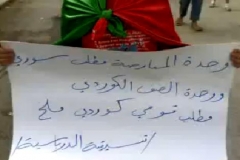 وحدة المعارضة مطلب سوري
ووحدة الصف الكوردي
مطلب قومي كوردي ملح
/تنسيقية الدرباسية/